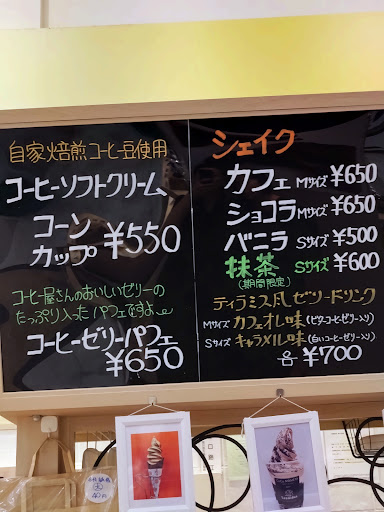 自家焙煎コーヒー豆使用
コーヒーソフトクリーム
コーン
カップ ¥550
コーヒー屋さんのおいしいゼリーの
たっぷり入ったパフェですよ〜
コーヒーゼリーパフェ
¥650
シェイク
カフェ Mサイズ ¥650
ショコラ Mサイズ ¥650
バニラ Sサイズ ¥500
抹茶 Sサイズ ¥600
(期間限定)
ティラミス風ゼリードリンク
Mサイズ カフェオレ味(ビターコーヒーゼリー入り)
Sサイズ キャラメル味(白いコーヒーゼリー入り)
各 ¥700